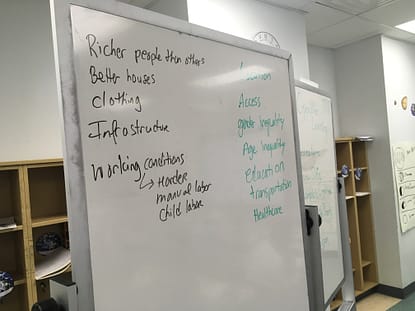 Richer people than others
Better houses
Clothing
Infrastructure
Working conditions
Harder
manual labor
Child labor
Location
Access
gender Inequality
Age Inequality
education
transportation
Healthcare